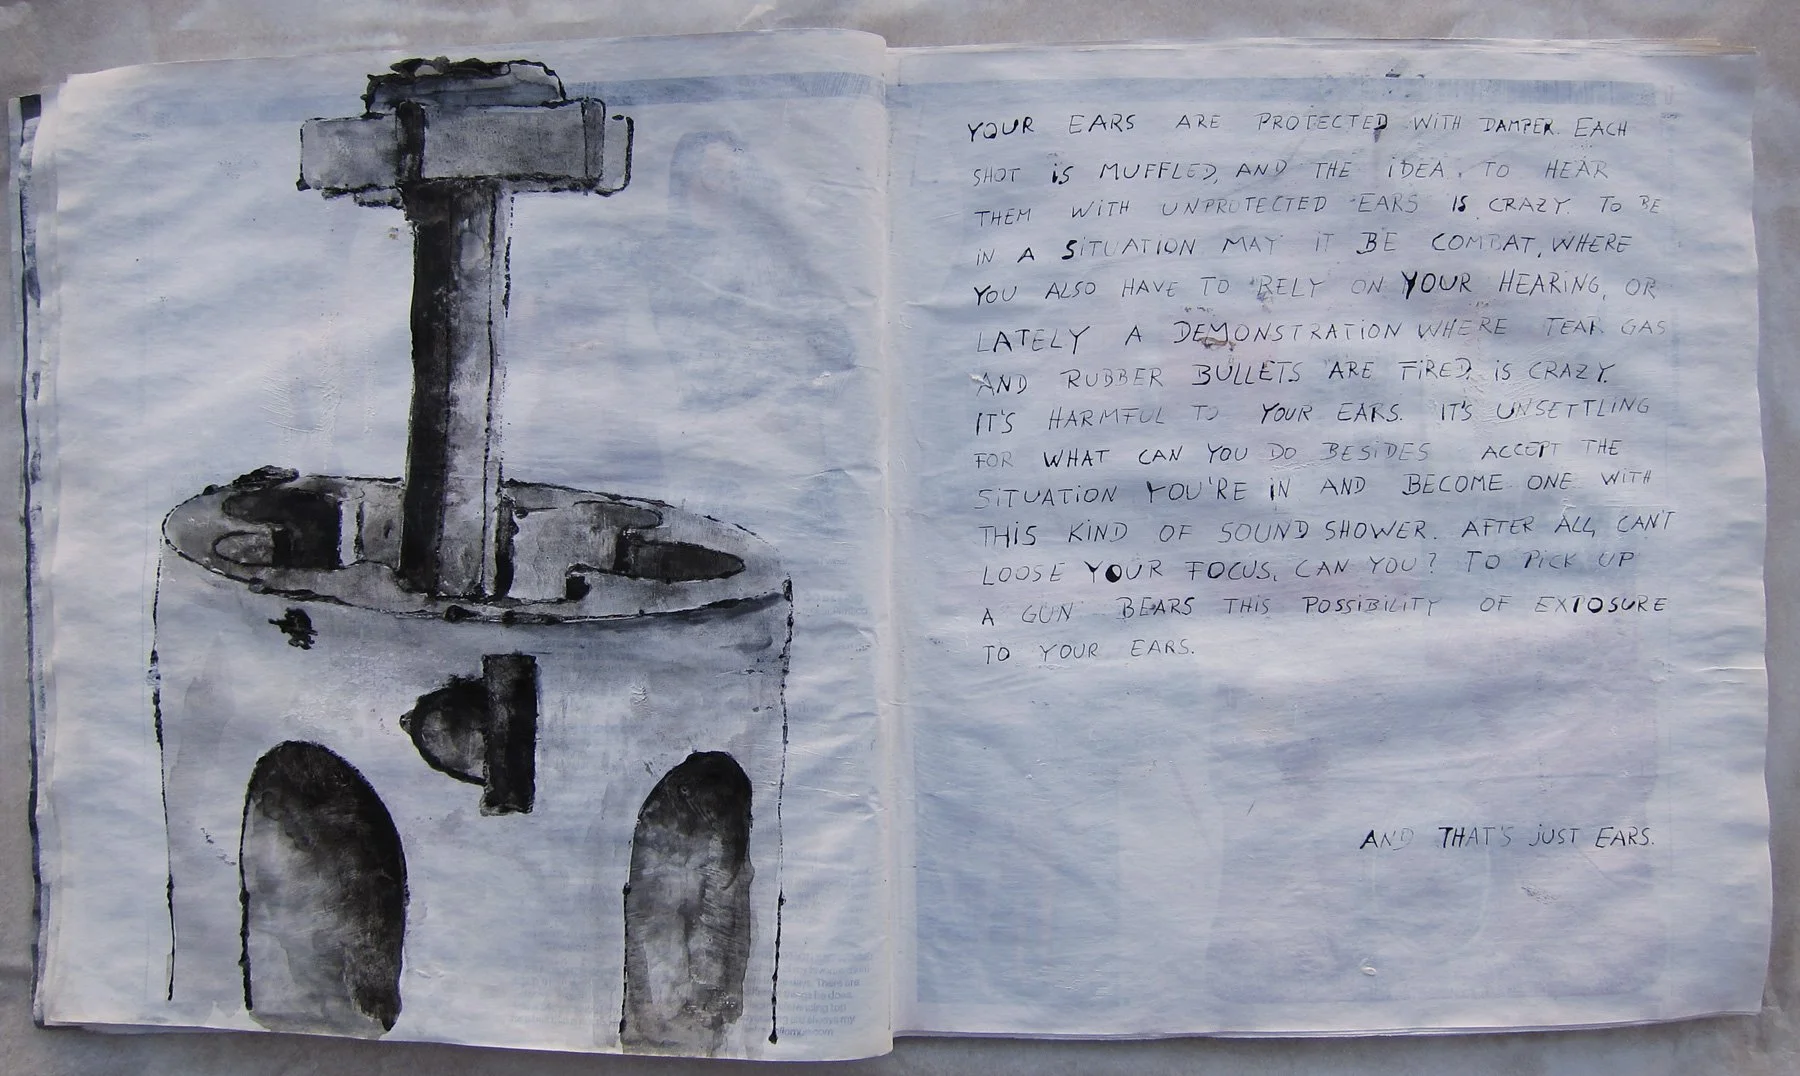 YOUR EARS ARE PROTECTED WITH DAMPER. EACH
SHOT iS MUFFLED, AND THE iDEA, TO HEAR
THEM WiTH UNPROTECTED EARS IS CRAZY. TO BE
iN A SiTUATION MAY IT BE COMBAT, WHERE
YOU ALSO HAVE TO RELY ON YOUR HEARiNG, OR
LATELY A DEMONSTRATiON WHERE TEAR GAS
AND RUBBER BULLETS ARE FiRED iS CRAZY.
IT'S HARMFUL TO YOUR EARS. IT'S UNSETTLING
FOR WHAT CAN YOU DO BESiDES ACCEPT THE
SiTUATiON YOU'RE iN AND BECOME ONE WiTH
THiS KiND OF SOUND SHOWER. AFTER ALL, CAN'T
LOOSE YOUR FOCUS, CAN YOU? TO PiCK UP
A GUN BEARS THIS POSSiBiLiTY OF EXPOSURE
TO YOUR EARS.
AND THAT'S JUST EARS.